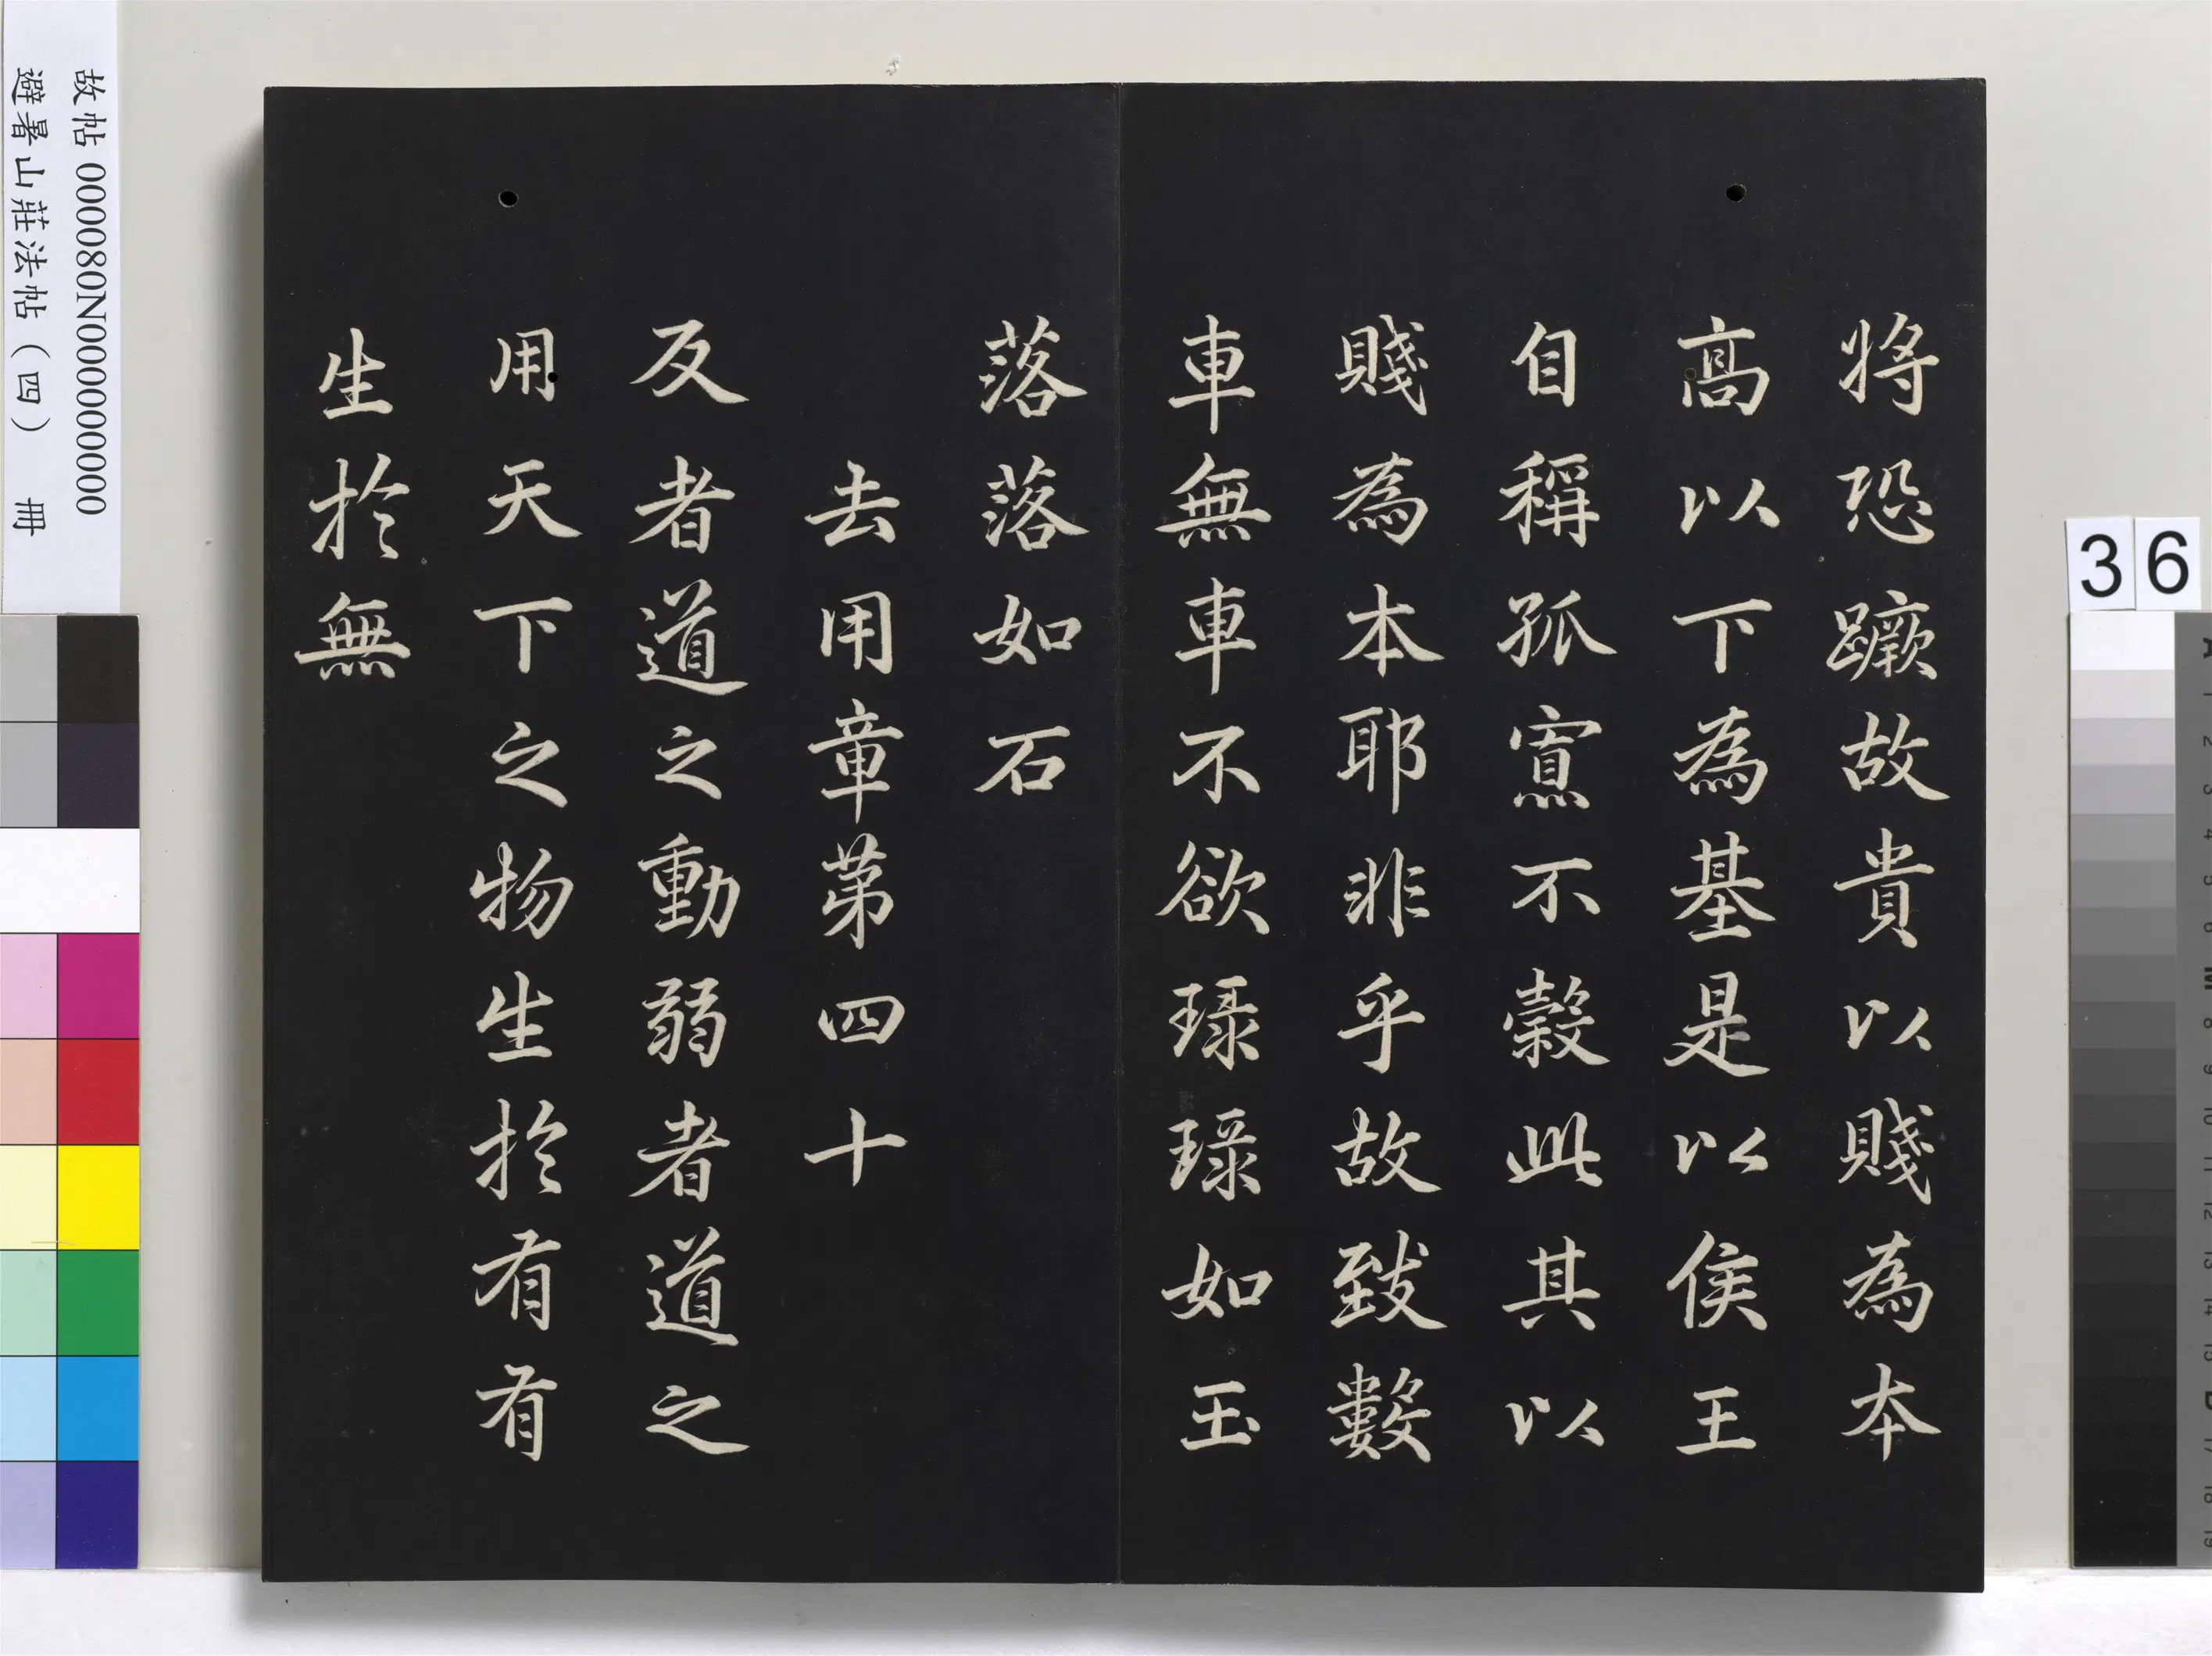 將恐蹶故貴以賤為本
高以下為基是以侯王
自稱孤寡不穀此其以
賤為本耶非乎故致數
車無車不欲琭琭如玉
落落如石
去用章第四十
反者道之動弱者道之
用天下之物生於有有
生於無
故帖 000080N000000000
避暑山莊法帖（四） 冊
36